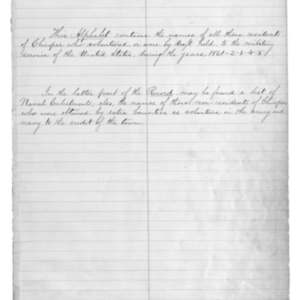 This Alphabet contains the names of all those residents
of Chicopee who volunteered or were by draft held to the military
service of the United States, during the years 1861-2-3-4-5.
In the latter part of the Record may be found a list of
Naval Enlistments, also the names of those non-residents of Chicopee
who were obtained by extra bounties as volunteers in the army and
navy to the credit of the town.